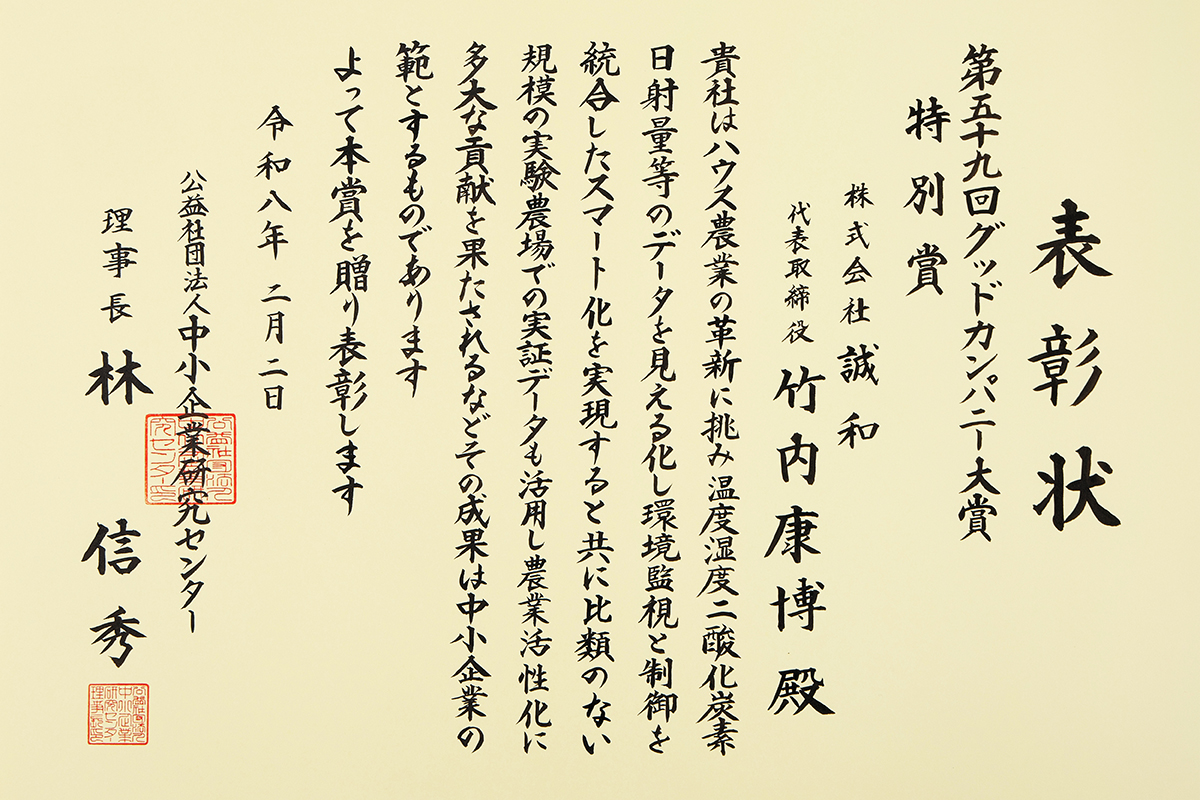 表彰状
第五十九回グッドカンパニー大賞
特別賞
株式会社 誠和
代表取締役 竹内康博殿
貴社はハウス農業の革新に挑み温度湿度二酸化炭素
日射量等のデータを見える化し環境監視と制御を
統合したスマート化を実現すると共に比類のない
規模の実験農場での実証データも活用し農業活性化に
多大な貢献を果たされるなどその成果は中小企業の
範とするものであります
よって本賞を贈り表彰します
令和八年 二月二日
公益社団法人中小企業研究センター
理事長 林 信秀